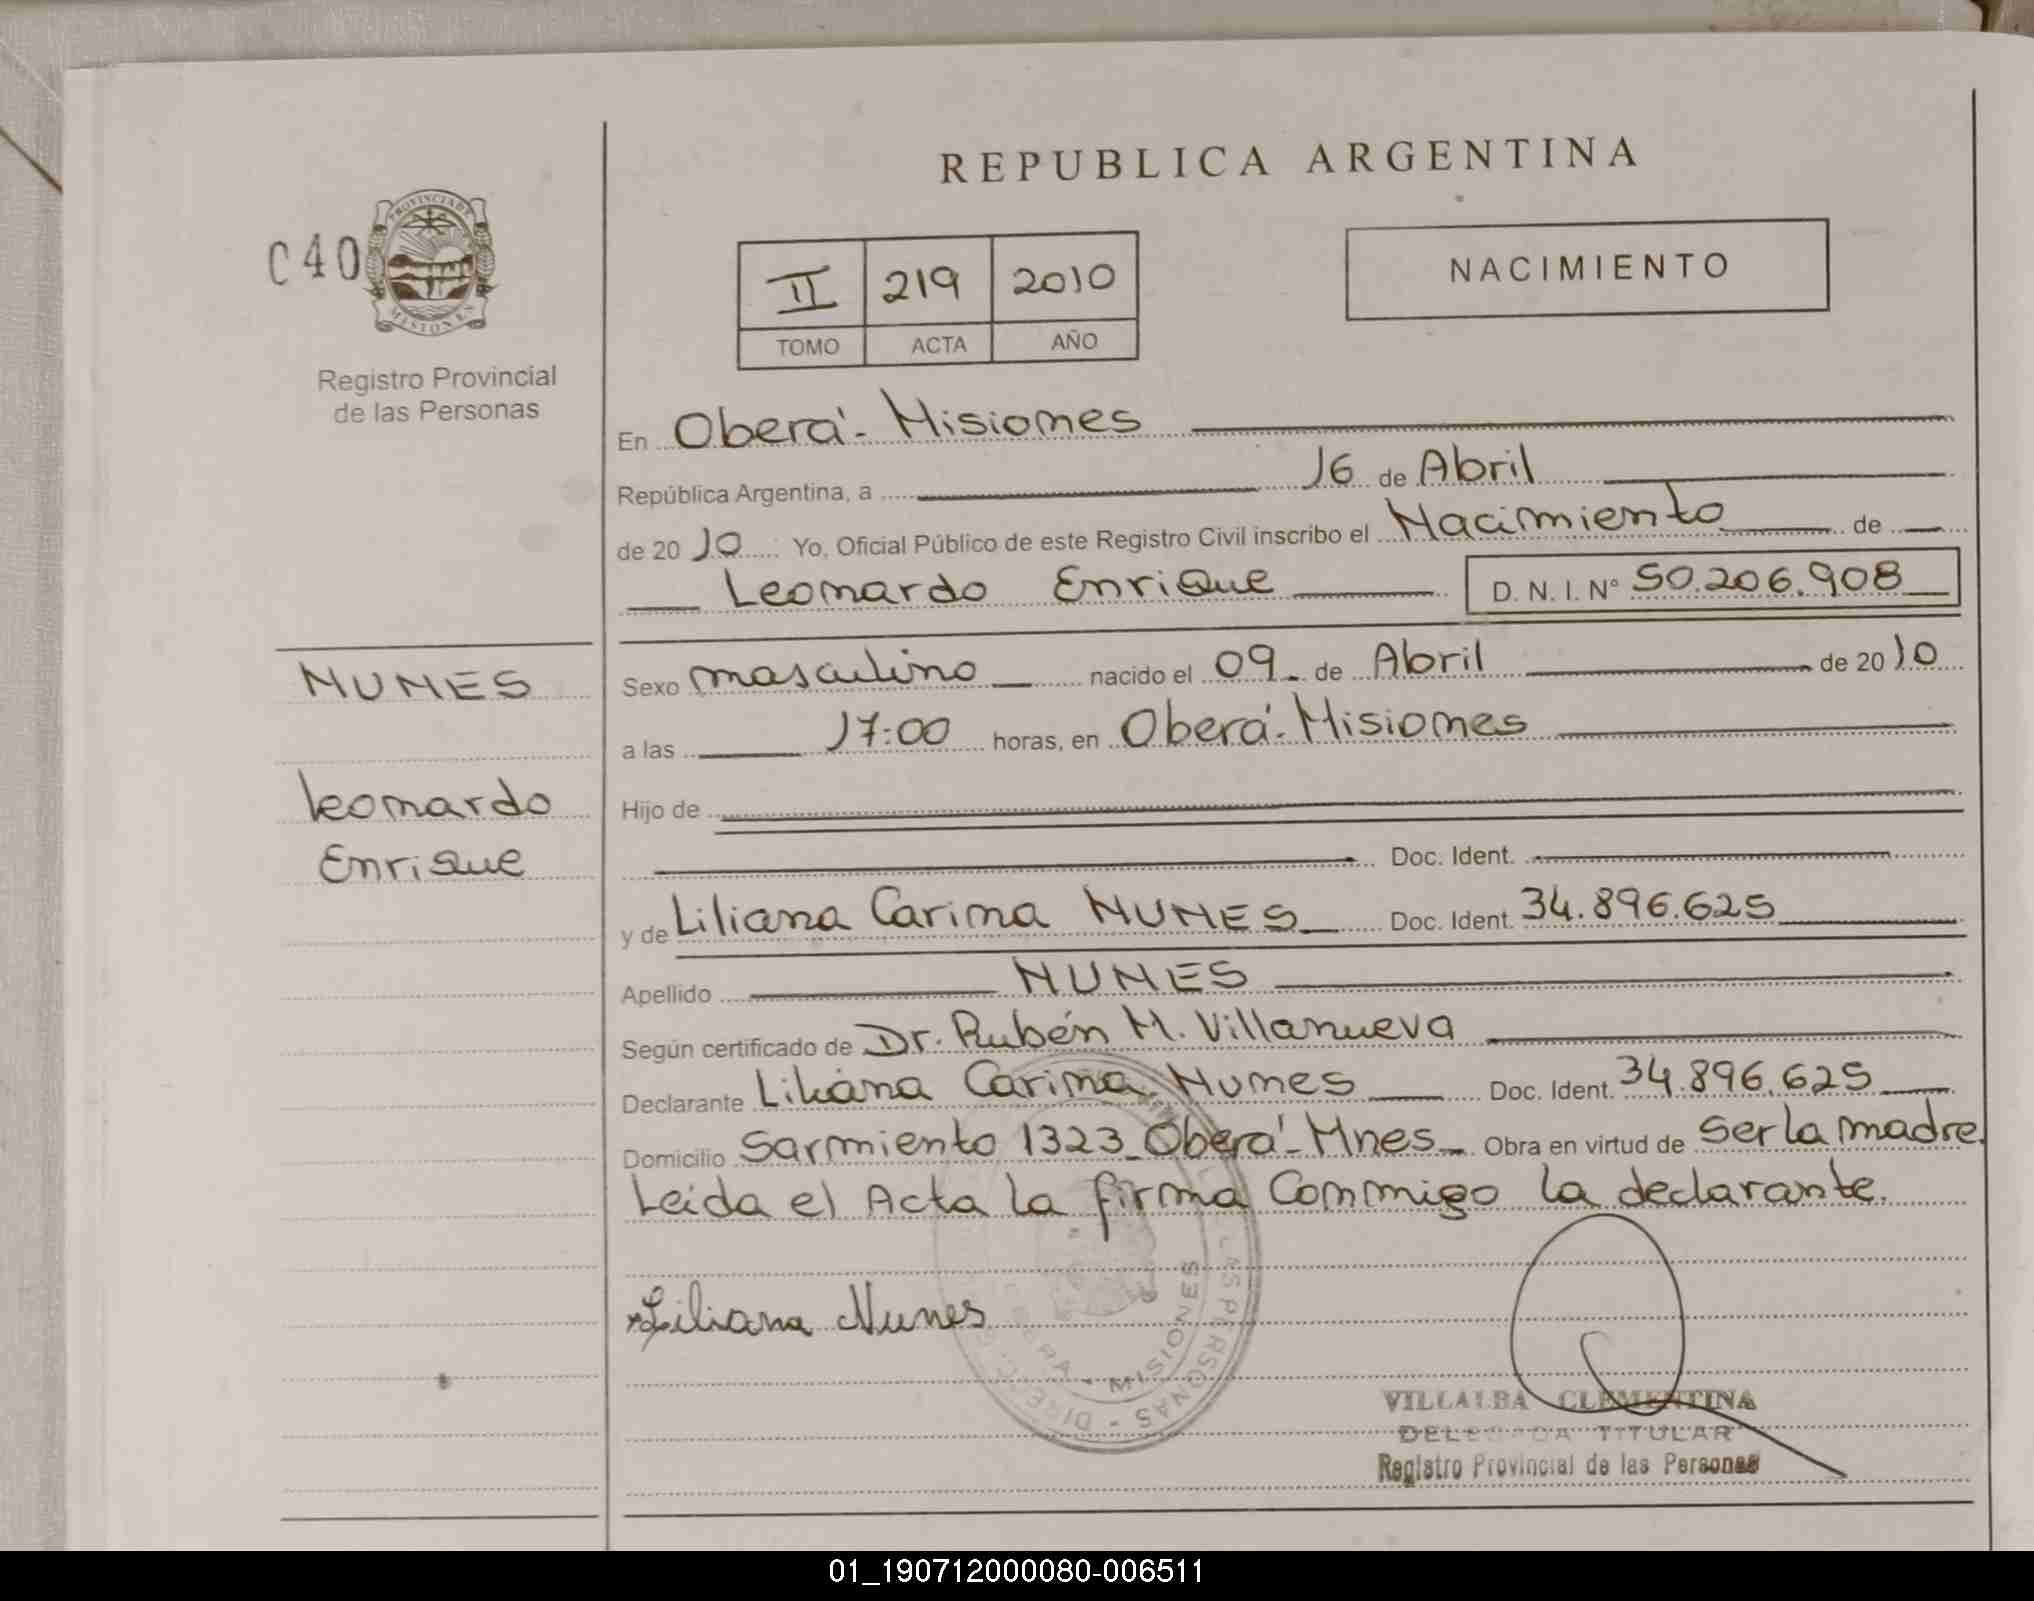 REPUBLICA ARGENTINA
C40
PROVINCIA DE
MISIONES
Registro Provincial
de las Personas
II 219 2010
TOMO ACTA AÑO
NACIMIENTO
En Oberá - Misiones
República Argentina, a 16 de Abril
de 2010 Yo, Oficial Público de este Registro Civil inscribo el Nacimiento de
Leonardo Enrique D. N. I. N° 50.206.908
NUNES
Leonardo
Enrique
Sexo masculino nacido el 09 de Abril de 2010
a las 17:00 horas, en Oberá - Misiones
Hijo de
Doc. Ident.
y de Liliana Carina NUNES Doc. Ident. 34.896.625
Apellido NUNES
Según certificado de Dr. Rubén M. Villanueva
Declarante Liliana Carina Nunes Doc. Ident. 34.896.625
Domicilio Sarmiento 1323 - Oberá - Mnes Obra en virtud de ser la madre.
Leída el Acta la firma Conmigo la declarante.
Liliana Nunes
LAS PERSONAS
MISIONES
VILLALBA CLEMENTINA
DELEGADA TITULAR
Registro Provincial de las Personas
01_190712000080-006511